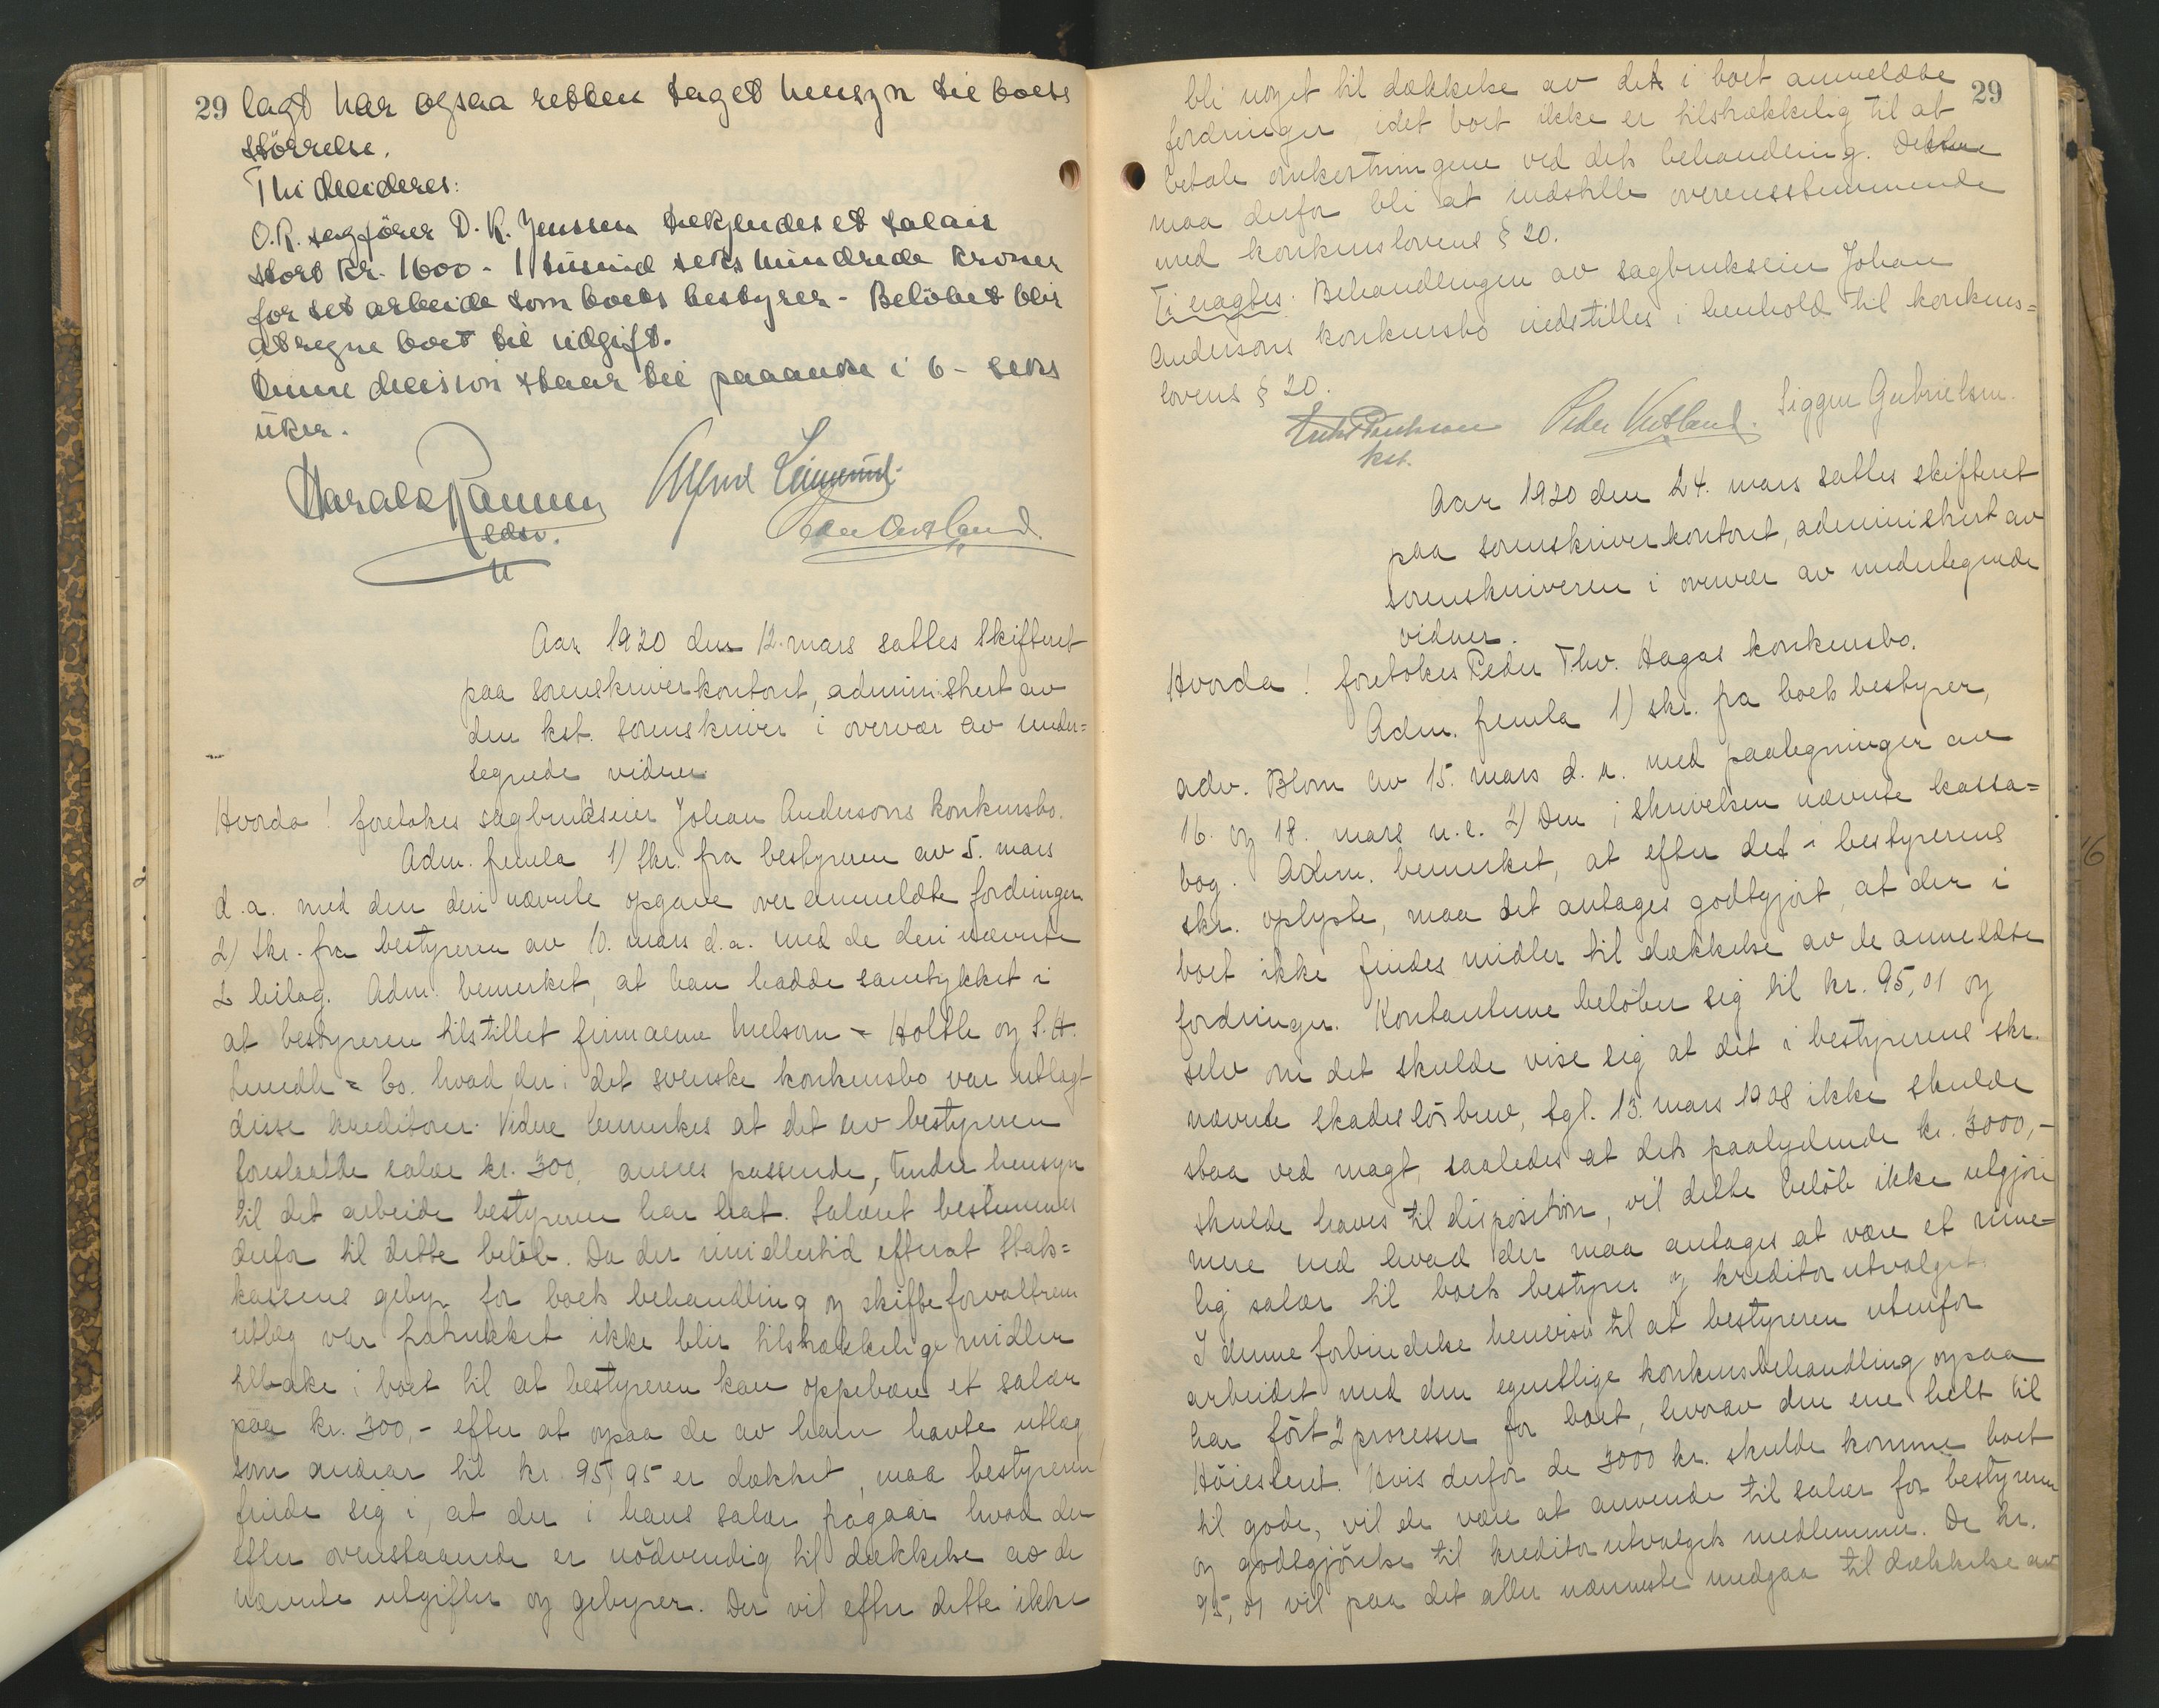 29 lagt har ogsaa retten taget hensyn til boets
størrelse.
Thi decideres:
O.R. sagfører D. K. Jenssen tilkjendes et salair
stort kr. 1600 - 1 tusind seks hundrede kroner
for sit arbeide som boets bestyrer - Beløbet blir
at regne boet til udgift.
Denne decision staar til paaanke i 6 - seks
uker.
Harald Alfred
edsv.
Aar 1920 den 12. mars sattes skifteret
paa sorenskriverkontoret, administrert av
den kst. sorenskriver i overvær av under=
tegnede vidner
Hvorda! foretokes sagbrukseier Johan Andersons konkursbo.
Adm. fremla 1) Skr. fra bestyreren av 5. mars
d.a. med den deri nævnte opgave over anmeldte fordringer
2) Skr. fra bestyreren av 10. mars d.a. med de deri nævnte
2 bilag. Adm. bemerket, at han hadde samtykket i
at bestyreren tilstillet firmaerne Melsom & Holtle og S. H.
Lundh & Co. hvad der i det svenske konkursbo var utlagt
disse kreditorer. Videre bemerkes at det av bestyreren
foreslaatte salær kr. 300, ansees passende, under hensyn
til det arbeide bestyreren har hat. Salæret bestemmes
derfor til dette beløb. Da der imidlertid efterat Stats=
kassens gebyr for boets behandling og skifteforvalteren
utlæg var fratrukket ikke blir tilstrækkelige midler
tilbake i boet til at bestyreren kan oppebære et salær
paa kr. 300,- efter at ogsaa de av ham havte utlæg
som andrar til kr 95,95 er dækket, maa bestyreren
finde sig i, at der i hans salær fragaar hvad der
efter ovenstaaende er nødvendig til dækkelse av de
nævnte utgifter og gebyrer. Der vil efter dette ikke
29
bli noget til dækkelse av det i boet anmeldte
fordringer, idet boet ikke er tilstrækkelig til at
betale omkostningene ved dets behandling. Dette
maa derfor bli at indstille overensstemmende
med konkurslovens § 20.
Ti eragtes: Behandlingen av sagbrukseier Johan
Andersons konkursbo indstilles i henhold til konkurs=
lovens § 20.
kst.
Peder Siggen Gabrielsen.
Aar 1920 den 24. mars sattes skifteret
paa sorenskriverkontoret, administrert av
sorenskriveren i overvær av undertegnede
vidner.
Hvorda! foretokes Peder Thv. Hagas konkursbo.
Adm. fremla 1) skr. fra boets bestyrer,
adv. Blom av 15. mars d. a. med paategninger av
16. og 18. mars n.e. 2) Den i skrivelsen nævnte kassa=
bog. Adm. bemerket, at efter det i bestyrerens
skr. oplyste, maa det antages godtgjort, at der i
boet ikke findes midler til dækkelse av de anmeldte
fordringer. Kontanterne beløber sig til kr. 95,01 og
selv om det skulde vise sig at det i bestyrerens skr.
nævnte skadesløsbrev, tgl. 13. mars 1908 ikke skulde
staa ved magt, saaledes at dets paalydende kr. 3000,-
skulde haves til disposition, vil dette beløb ikke utgjøre
mere end hvad der maa antages at være et rime=
lig salær til boets bestyrer og kreditorutvalget.
I denne forbindelse henvises til at bestyreren utenfor
arbeidet med den egentlige konkursbehandling ogsaa
har ført 2 prosesser for boet, hvorav den ene helt til
Høiesteret. Hvis derfor de 3000 kr. skulde komme boet
til gode, vil de være at anvende til salær for bestyreren
og godtgjørelse til kreditorutvalgets medlemmer. De kr.
95,01 vil paa det aller nærmeste medgaa til dækkelse av